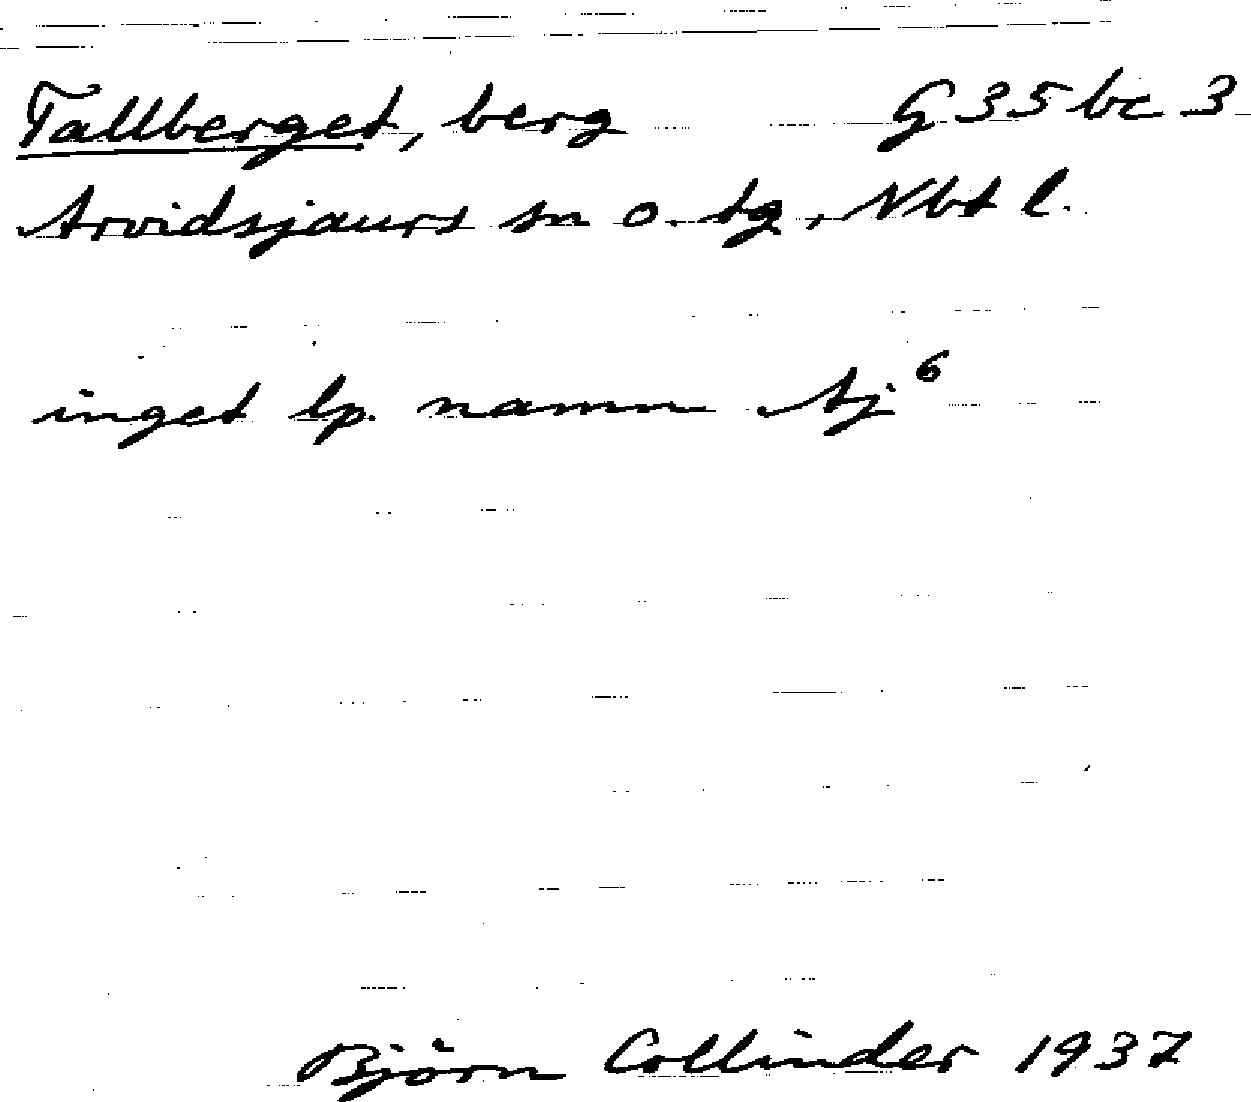 Tallberget, berg G 35 bc 3
Arvidsjaurs sn o. tg, Nbt l.
inget lp. namn Aj⁶
Björn Collinder 1937